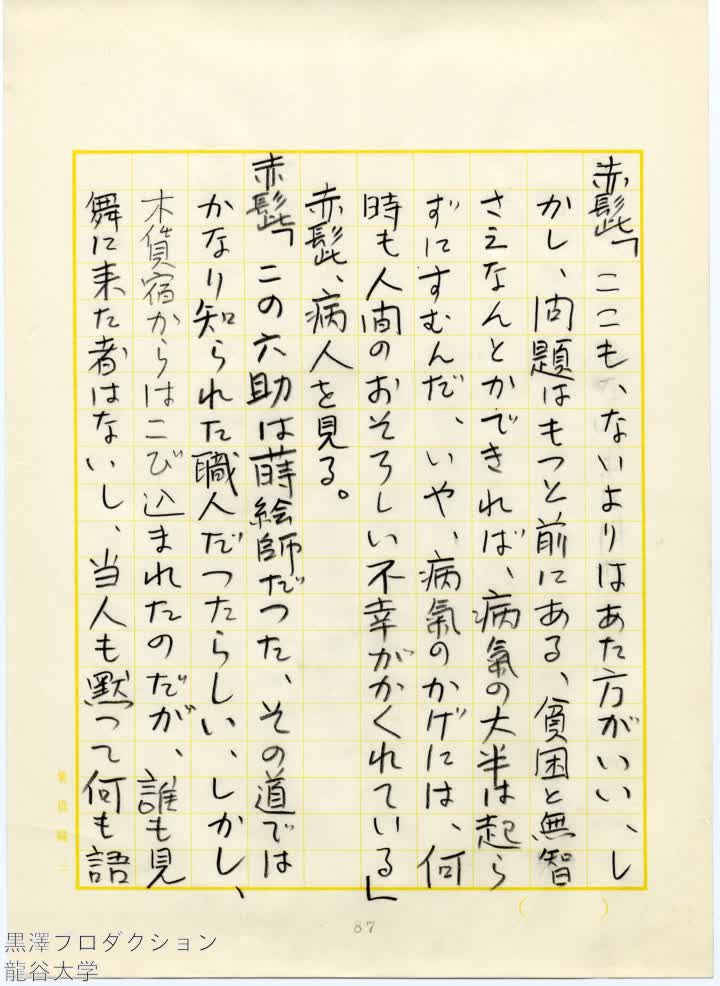 赤髭「ここも、ないよりはあた方がいい、し
かし、問題はもつと前にある、貧困と無智
さえなんとかできれば、病氣の大半は起ら
ずにすむんだ、いや、病氣のかげには、何
時も人間のおそろしい不幸がかくれている」
赤髭、病人を見る。
赤髭「この六助は蒔絵師だつた、その道では
かなり知られた職人だつたらしい、しかし、
木賃宿からはこび込まれたのだが、誰も見
舞に来た者はないし、当人も黙つて何も語
87
黒澤プロダクション
龍谷大学